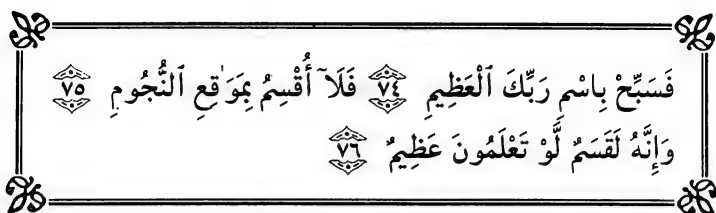 فَسَبِّحْ بِاسْمِ رَبِّكَ ٱلْعَظِيمِ ٧٤ فَلَآ أُقْسِمُ بِمَوَٰقِعِ ٱلنُّجُومِ ٧٥
وَإِنَّهُۥ لَقَسَمٌ لَّوْ تَعْلَمُونَ عَظِيمٌ ٧٦